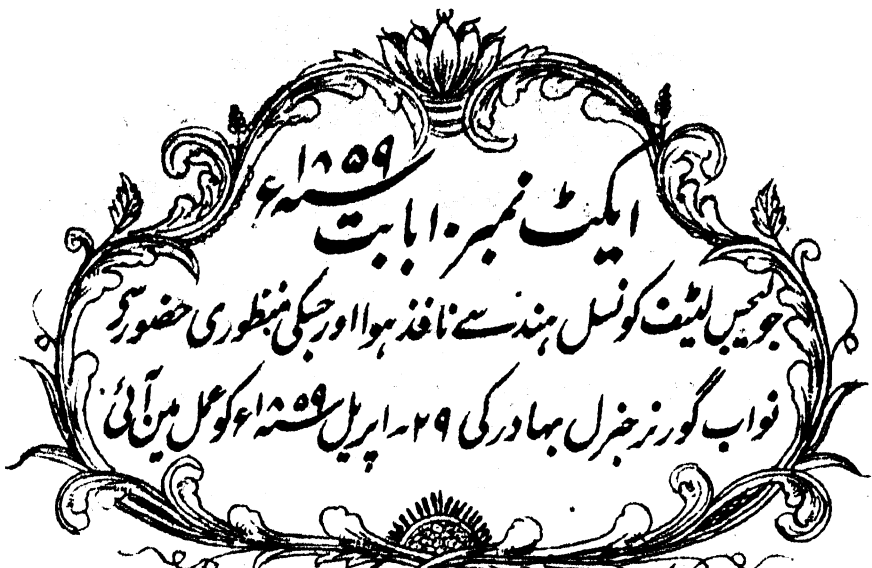 ایکٹ نمبر ۱۰ بابت سنہ ۱۸۵۹ء
جو لیجس لیٹف کونسل ہند سے نافذ ہوا اور جسکی منظوری حضور سی
نواب گورنر جنرل بہادر کی ۲۹ ۔ اپریل سنہ ۱۸۵۹ء کو عمل مین آئی